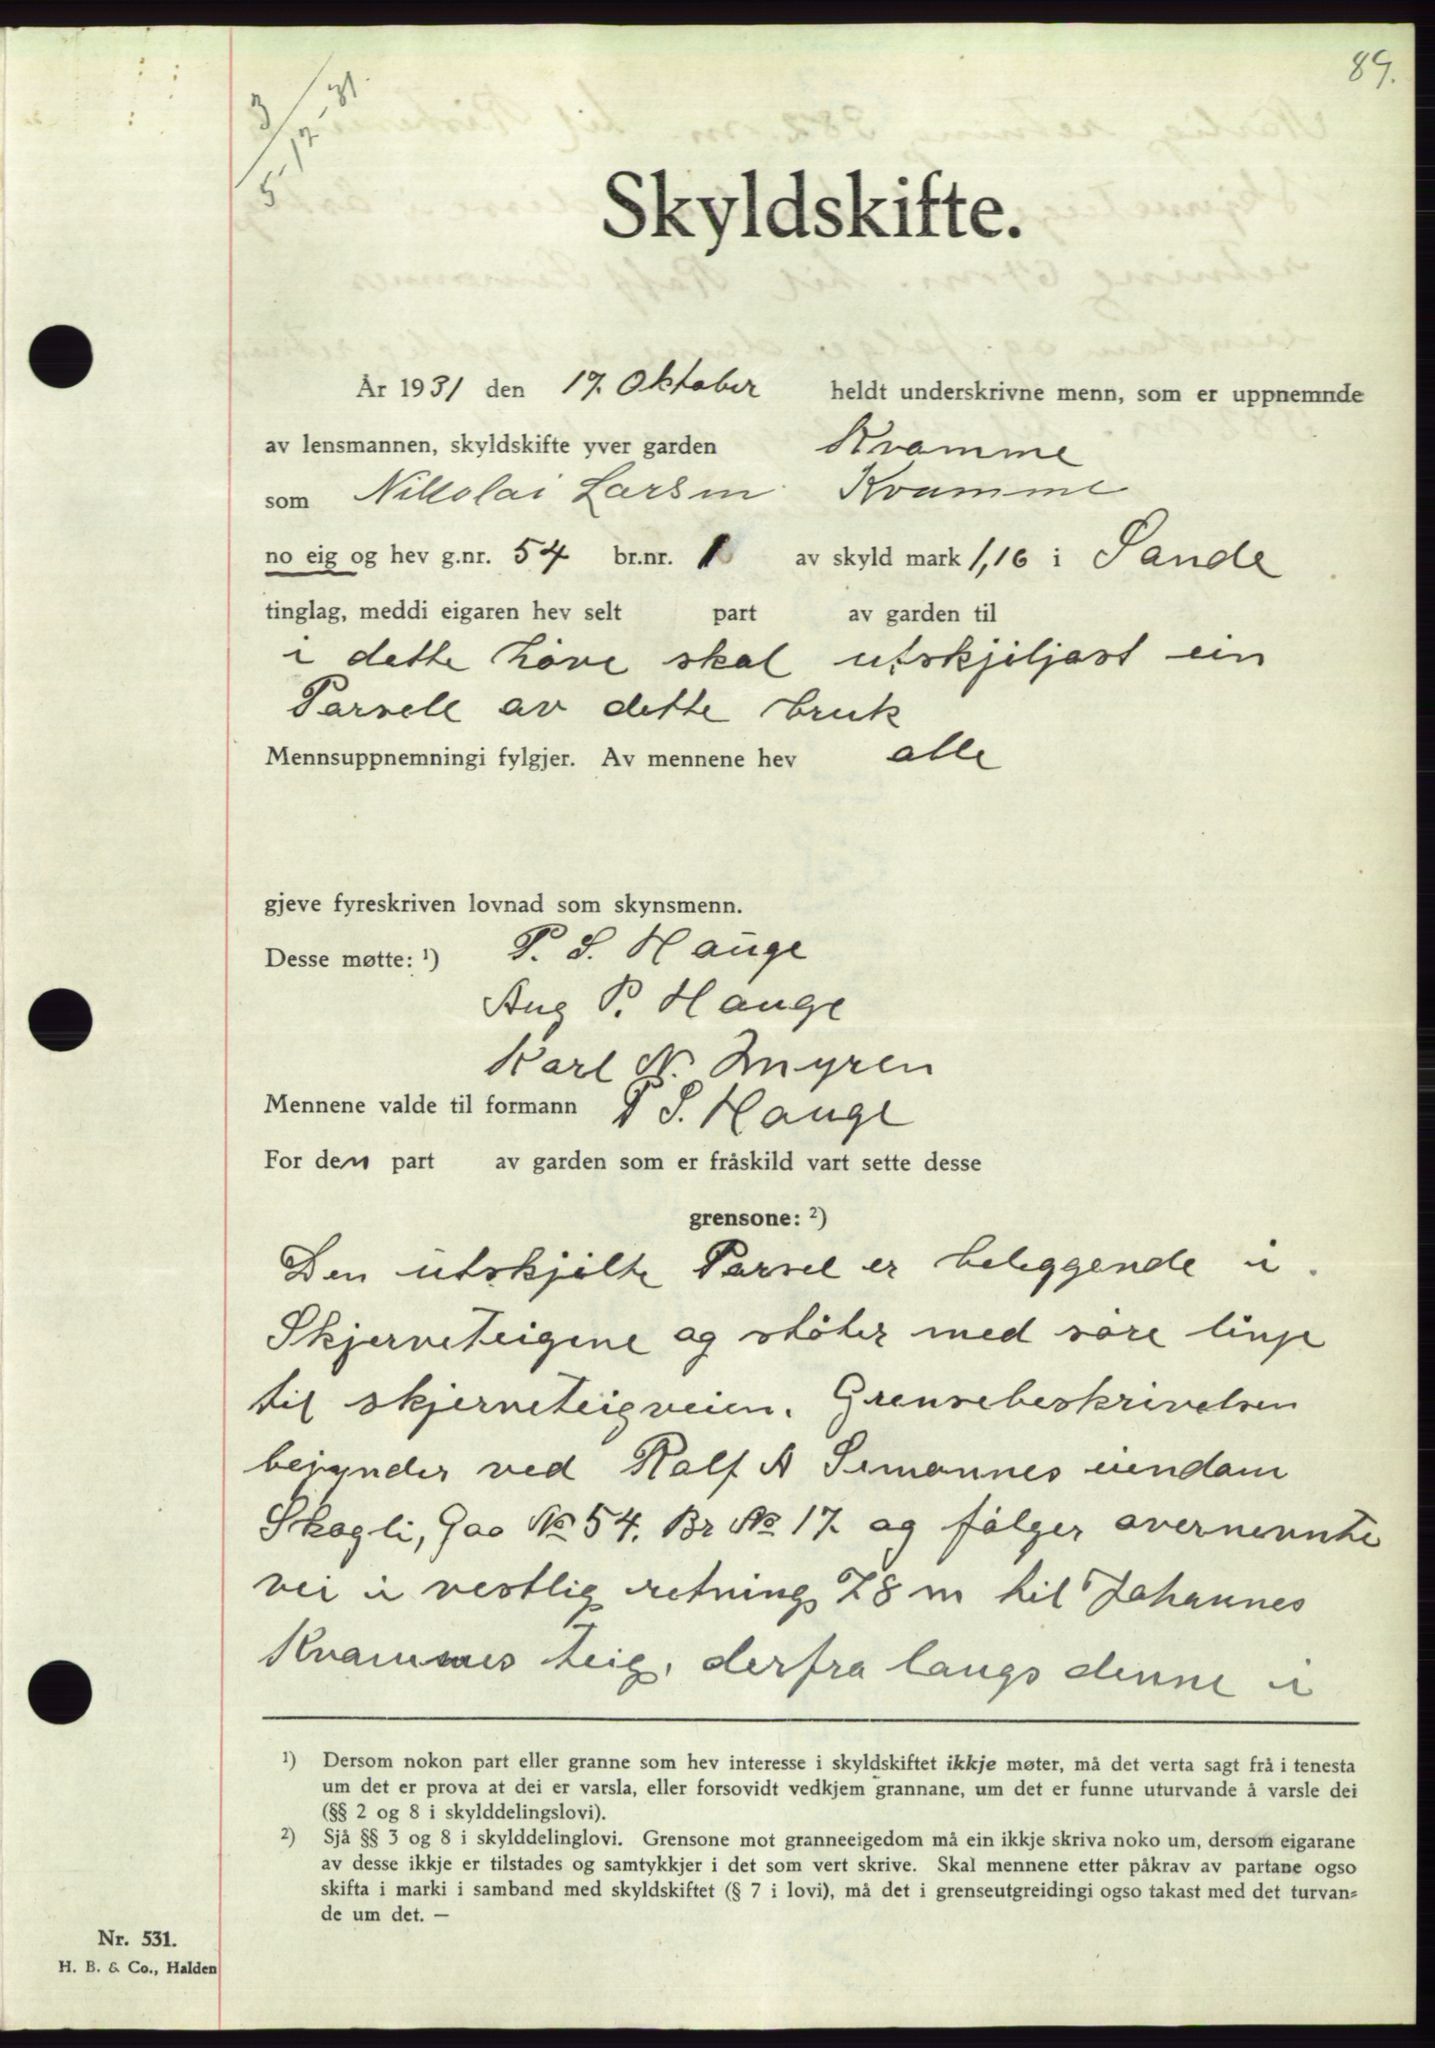 89.
3/12-31
5
Skyldskifte.
År 1931 den 17. Oktober heldt underskrivne menn, som er uppnemnde
av lensmannen, skyldskifte yver garden Kvamme
som Nikolai Larsen Kvamme
no eig og hev g.nr. 54 br.nr. 1 av skyld mark 1,16 i Sande
tinglag, meddi eigaren hev selt part av garden til
i dette høve skal utskjiljast ein
Parsell av dette bruk
Mennsuppnemningi fylgjer. Av mennene hev alle
gjeve fyreskriven lovnad som skynsmenn.
Desse møtte: 1) P. S. Hauge
Aug P. Hauge
Karl N. Imyren
Mennene valde til formann P S. Hauge
For den part av garden som er fråskild vart sette desse
grensone: 2)
Den utskjilte Parsel er beleggende i
Skjerveteigene og støter med søre linje
til skjerveteigveien. Grensebeskrivelsen
begynder ved Ralf A Simonnes eiendom
Skogli, Gao No 54. Br No 17 og følger overnevnte
vei i vestlig retning 28 m til Johannes
Kvammes teig, derfra langs denne i
1) Dersom nokon part eller granne som hev interesse i skyldskiftet ikkje møter, må det verta sagt frå i tenesta
um det er prova at dei er varsla, eller forsovidt vedkjem grannane, um det er funne uturvande å varsle dei
(§§ 2 og 8 i skylddelingslovi).
2) Sjå §§ 3 og 8 i skylddelinglovi. Grensone mot granneeigedom må ein ikkje skriva noko um, dersom eigarane
av desse ikkje er tilstades og samtykkjer i det som vert skrive. Skal mennene etter påkrav av partane ogso
skifta i marki i samband med skyldskiftet (§ 7 i lovi), må det i grenseutgreidingi ogso takast med det turvan=
de um det. —
Nr. 531.
H. B. & Co., Halden